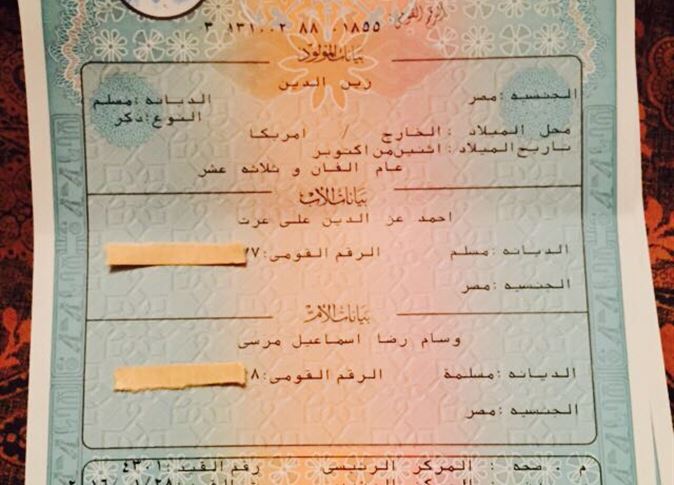 الرقم القومى ٣ ١٣١٠٠٢ ٨٨ ٠١٨٥٥
بيانات المولود
زين الدين
الجنسيه :مصر الديانه :مسلم
النوع:ذكر
محل الميلاد : الخارج / امريكا
تاريخ الميلاد: اثنين من اكتوبر
عام الفان و ثلاثه عشر
بيانات الأب
احمد عز الدين على عزت
الديانه :مسلم الرقم القومى:٧٧
الجنسيه :مصر
بيانات الأم
وسام رضا اسماعيل مرسى
الديانه :مسلمة الرقم القومى:٨
الجنسيه :مصر
م . صحه : المركز الرئيسى رقم القيد: ٤٣٠١